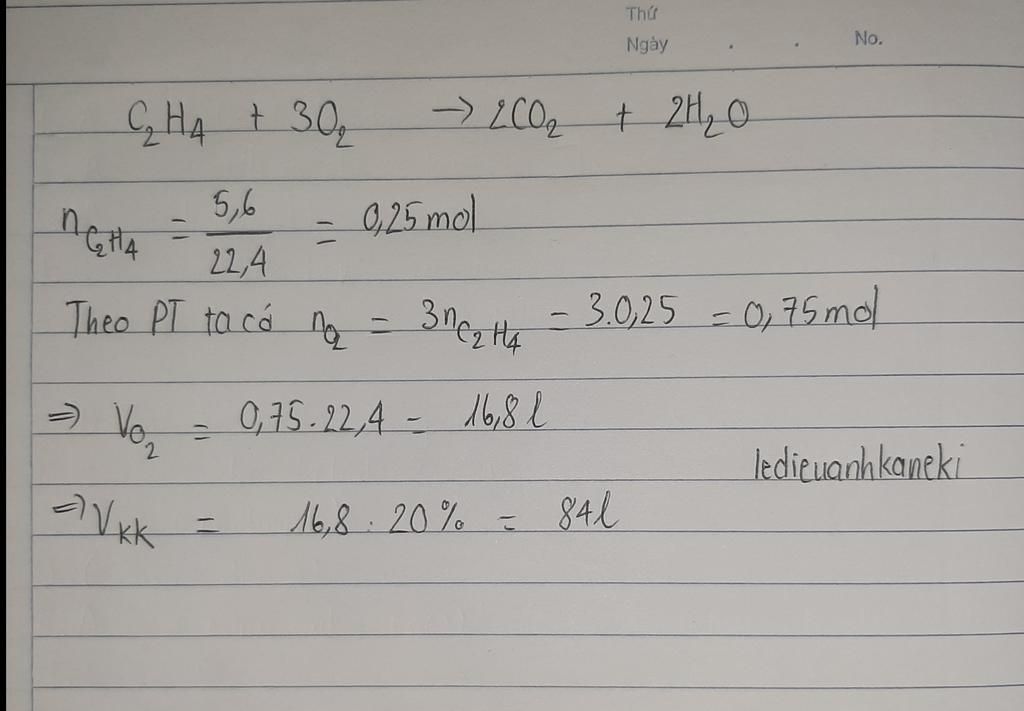 Thứ
Ngày . . No.
C₂H₄ + 3O₂ → 2CO₂ + 2H₂O
n_C₂H₄ = 5,6/22,4 = 0,25mol
Theo PT ta có n_O₂ = 3n_C₂H₄ = 3.0,25 = 0,75mol
⇒ V_O₂ = 0,75.22,4 = 16,8 l
ledieuanhkaneki
⇒ V_KK = 16,8 . 20% = 84 l